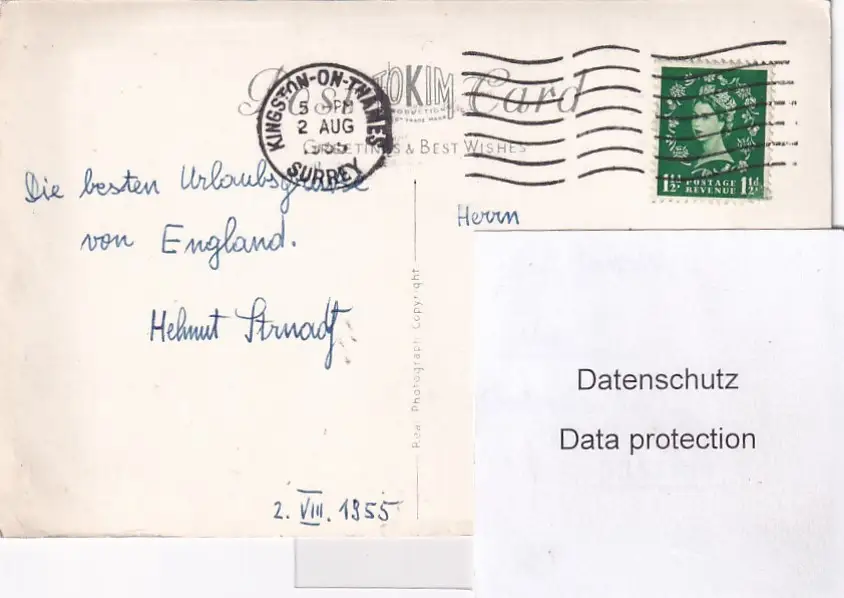 Post Card
TOKIM
PRODUCTION
TRADE MARK
GREETINGS & BEST WISHES
KINGSTON-ON-THAMES
5 - PM
2 AUG
1955
SURREY
1½d POSTAGE 1½d
REVENUE
Die besten Urlaubsgrüsse
von England.
Helmut Strnadt
2. VIII. 1955
Real Photograph Copyright
Herrn
Datenschutz
Data protection